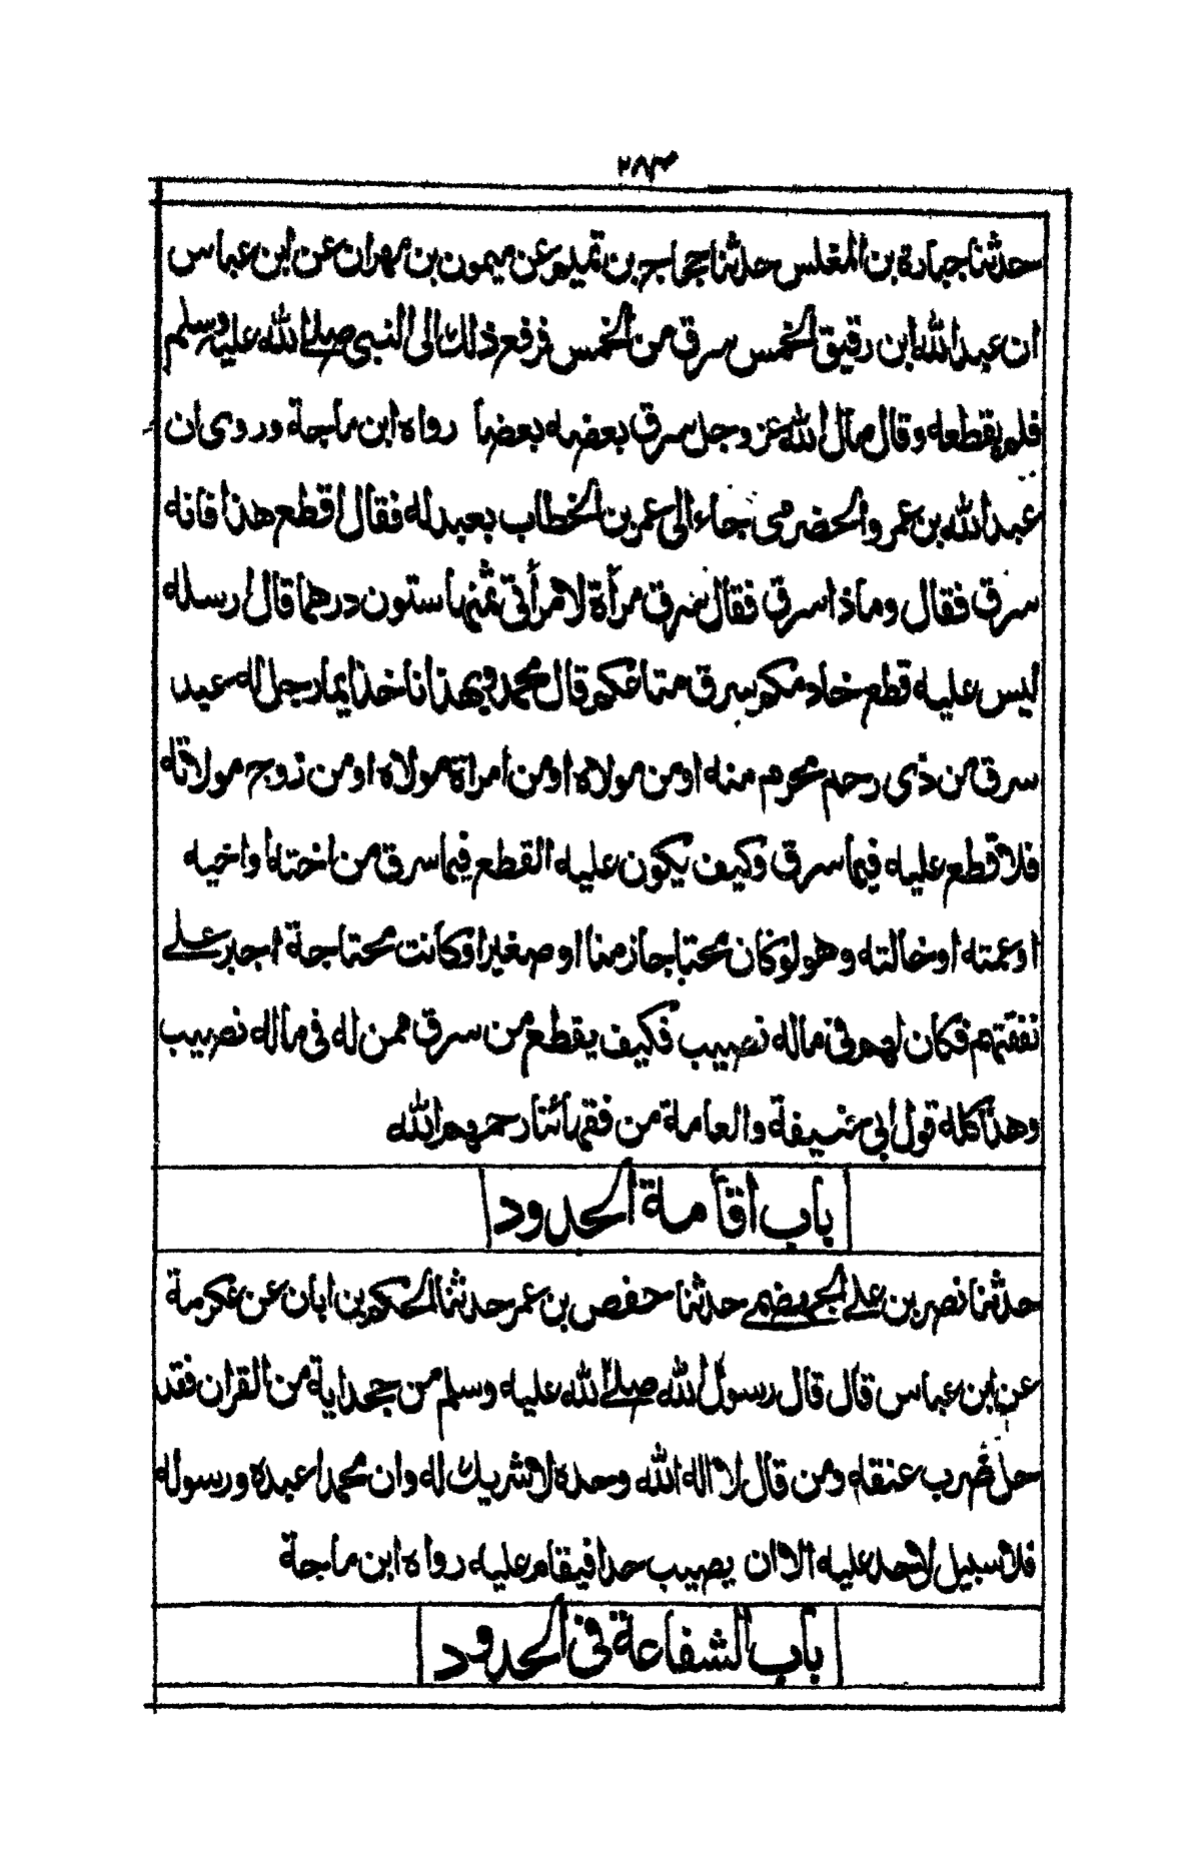 ٢٨٣
حدثنا جبارة بن المغلس حدثنا حجاج بن تميم عن ميمون بن مهران عن ابن عباس
ان عبدا لله ابن رقيق الخمس سرق من الخمس فرفع ذلك الى النبي صلى الله عليه وسلم
فلم يقطعه وقال مال الله عز وجل سرق بعضه بعضا رواه ابن ماجة وروى ان
عبد الله بن عمرو الحضرمى جاء الى عمر بن الخطاب بعبد له فقال اقطع هذا فانه
سرق فقال وماذا سرق فقال سرق مرأة لامرأتى ثمنها ستون درهما قال ارسله
ليس عليه قطع خادمكم سرق متاعكم قال محمد وبهذا ناخذ ايما رجل له عبد
سرق من ذى رحم محرم منه او من مولاه او من امراة مولاه او من زوج مولاته
فلا قطع عليه فيما سرق وكيف يكون عليه القطع فيما سرق من اخته او اخيه
او عمته او خالته وهو لو كان محتاجا زمنا او صغيرا وكانت محتاجة اجبر على
نفقتهم فكان لهم فى ماله نصيب فكيف يقطع من سرق ممن له فى ماله نصيب
وهذا كله قول ابى حنيفة والعامة من فقهائنا رحمهم الله
باب اقامة الحدود
حدثنا نصر بن على الجهضمى حدثنا حفص بن عمر حدثنا الحكم بن ابان عن عكرمة
عن ابن عباس قال قال رسول الله صلى الله عليه وسلم من جحد اية من القران فقد
حل ضرب عنقه ومن قال لا اله الا الله وحده لا شريك له وان محمدا عبده ورسوله
فلا سبيل لاحد عليه الا ان يصيب حدا فيقام عليه رواه ابن ماجة
باب الشفاعة فى الحدود